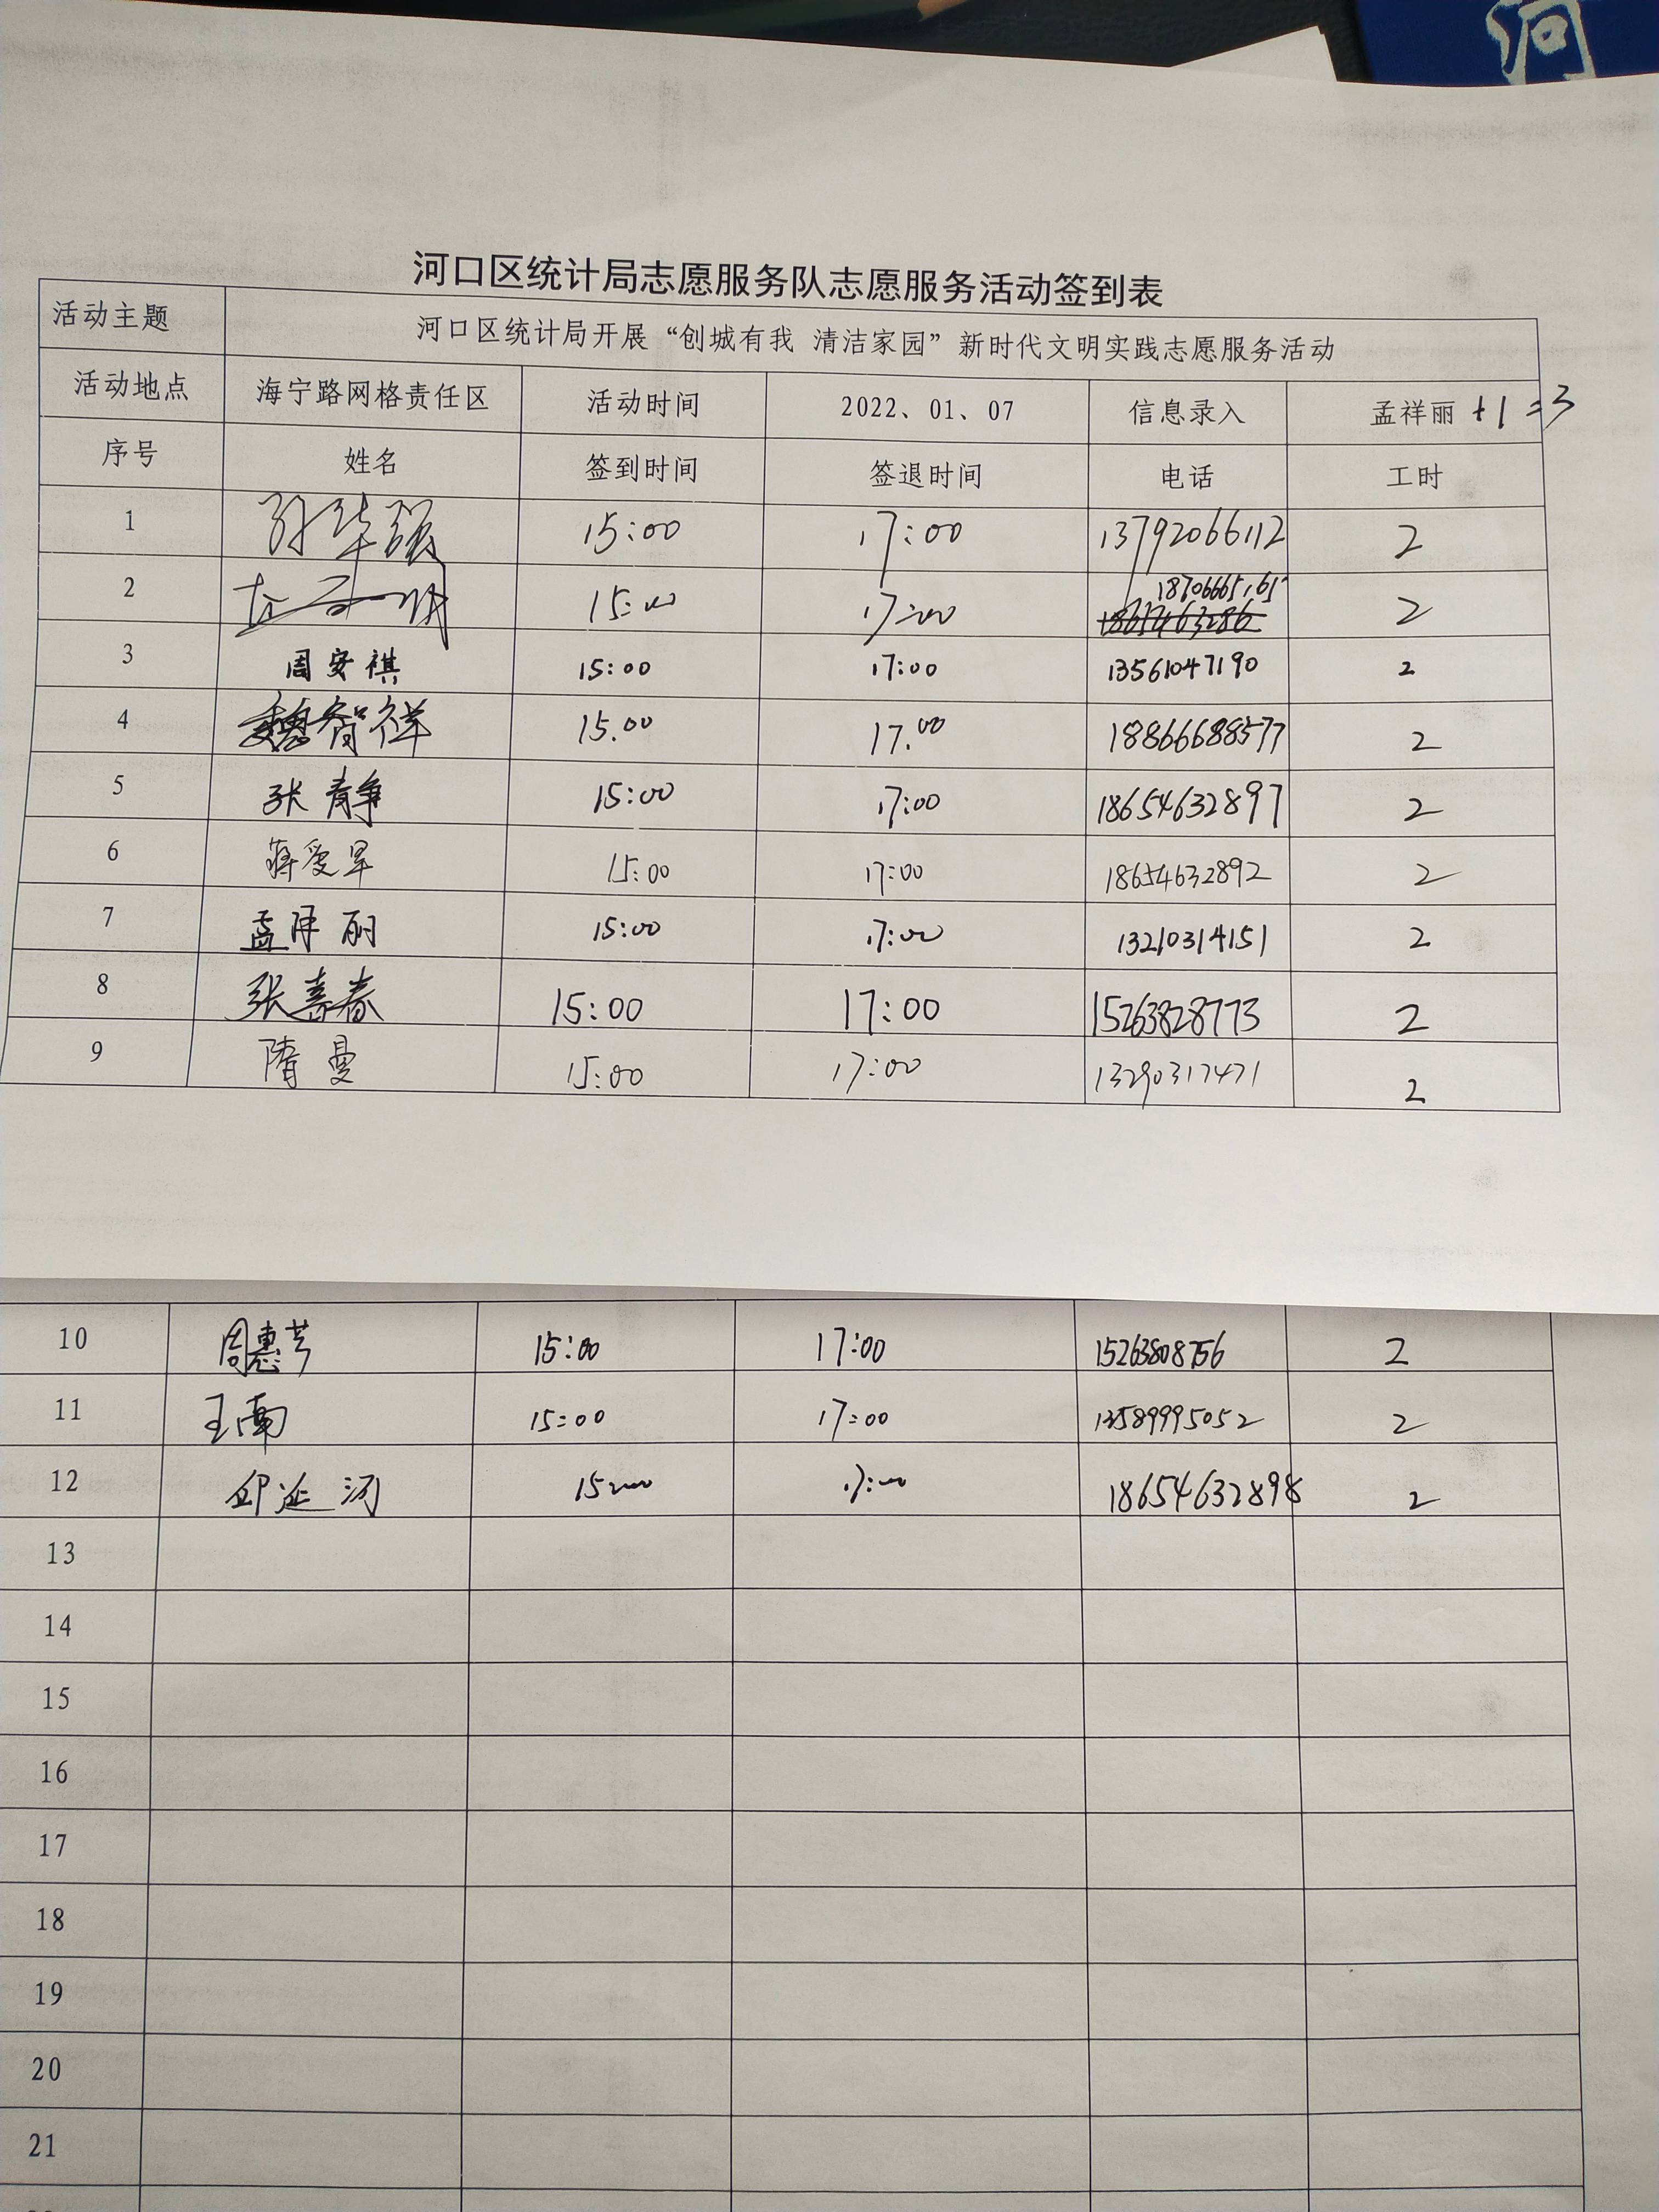 河
河口区统计局志愿服务队志愿服务活动签到表
活动主题 河口区统计局开展“创城有我 清洁家园”新时代文明实践志愿服务活动
活动地点 海宁路网格责任区 活动时间 2022、01、07 信息录入 孟祥丽 +1=3
序号 姓名 签到时间 签退时间 电话 工时
1 15:00 17:00 13792066112 2
2 15:00 17:00 2
3 周安祺 15:00 17:00 13561047190 2
4 魏智祥 15.00 17.00 18866688577 2
5 张静 15:00 17:00 18654632897 2
6 蒋爱军 15:00 17:00 18654632892 2
7 孟祥丽 15:00 17:00 13210314151 2
8 张春 15:00 17:00 15263828773 2
9 隋曼 15:00 17:00 13290317471 2
10 周惠芳 15:00 17:00 15263808756 2
11 王南 15:00 17:00 13589995052 2
12 邱延河 15:00 17:00 18654632898 2
13
14
15
16
17
18
19
20
21